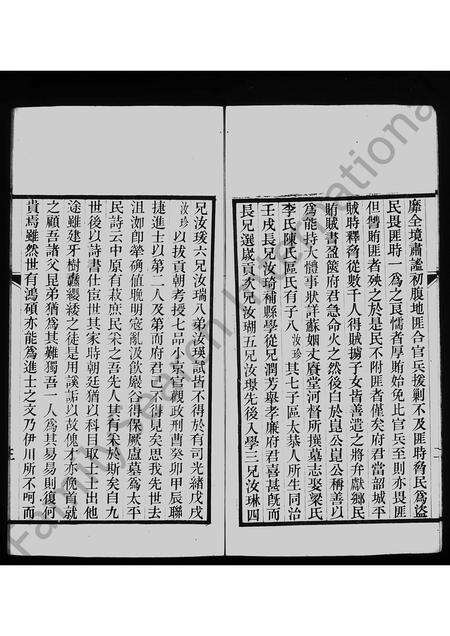 靡全境肅謐初腹地匪合官兵援剿不及匪時脅民為盜
民畏匪時一為之良懦者厚賄免比官兵至則亦畏匪
但讐賄匪者殃之於是民不附匪者僅矣府君當韶城平
賊時釋脅從數千人得賊擄子女皆善遣之將弁獻鄉民
賄賊書盈篋府君急命火之然後白於崑公崑公稱善以
為能持大體事狀詳蘇姻丈賡堂河督所撰墓志娶梁氏
李氏陳氏區氏有子八汝珍其七子區太恭人所生同治
壬戌長兄汝琦補縣學從兄潤芳舉孝廉府君喜甚旣而
長兄選歲貢次兄汝瑚五兄汝璟先後入學三兄汝琳四
兄汝琰六兄汝瑞八弟汝瑛試皆不得於有司光緒戊戌
汝珍以拔貢朝考授七品小京官觀政刑曹癸卯甲辰聯
捷進士以第二人及第而府君已不得見矣思我先世去
沮洳卽犖确值晚明寇亂汲飲巖谷得保厥廬墓為太平
民詩云中原有菽庶民采之吾先人其有采於斯矣自九
世後以詩書仕宦世其家時朝廷猶以科目取士士出他
途雖建牙樹纛纓緌之徒是用謑詬以故傀才亦俛首就
之顧吾諸父昆弟猶為其難獨吾一人為其易易則復何
貴焉雖然世有鴻碩亦能為進士之文乃伊川所不呵而
Family Search International